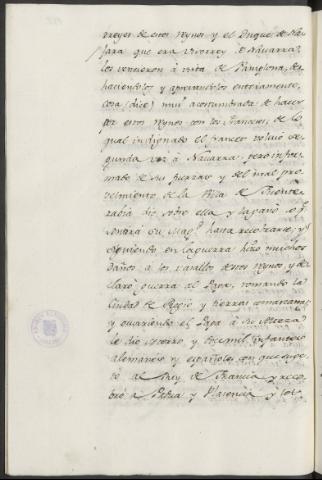 rreyes de estos Reynos y el Duque de Na
jara que era Visorrey de Navarra
los vencieron à vista de Pamplona, des
haciendolos y apretandolos enteramente,
cosa (dice) muy acostumbrada de hacer
por estos Reynos con los Franceses; de lo
qual indignado el frances volviò se
gunda vez à Navarra; pero infor
mado de sus fuerzas y del mal pro
veimiento de la Villa de Fuente
rabia diò sobre ella y la ganò
Su Mag.d hasta recobrarse; y
siguiendo en la guerra hizo muchos
daños à los vasallos de estos Reynos, y de
clarò guerra al Papa, tomando la
Ciudad de Regio y tierras comarcanas
y ocurriendo el Papa à Su
le dio socorro, y diez mil infanteria
alemanes y españoles con que
al Rey de Francia y reco
brò à Padua y Plasencia y los